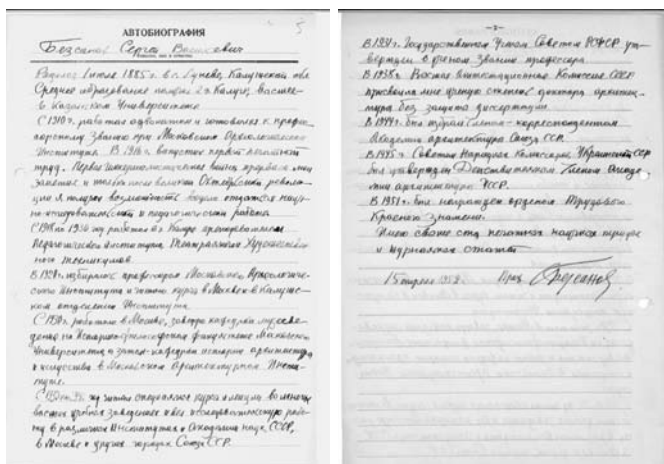 АВТОБИОГРАФИЯ
Безсонов Сергей Васильевич
Родился 1 июля 1885 в г. Калужской обл.
Среднее образование получил в г. Калуге, высшее
в Казанском Университете
С 1910 г. работал адвокатом и готовился к профес-
сорскому званию при Московском Археологическом
Институте. В 1916 г. выпустил первый печатный
труд. Первая Империалистическая война прервала мои
занятия и только после Великой Октябрьской револю-
ции я получил возможность вновь отдаться науч-
но-исследовательской и педагогической работе.
С 1918 по 1930 год работал в г. Калуге преподавателем
Педагогического Института, Театрального, Художествен-
ного техникумов.
В 1921 г. избирался профессором Московского Археологиче-
ского Института и читал курсы в Москве и в Калужс-
ком отделении Института.
С 1930 г. работаю в Москве, заведую кафедрой музееве-
дения на Историко-философском факультете Московского
Университета, а затем - кафедрой истории архитектуры
и искусства в Московском Архитектурном Инсти-
туте.
С год читал специальные курсы и лекции во многих
высших учебных заведениях и вел исследовательскую рабо-
ту в различных Институтах и Академии наук СССР,
в Москве и других городах Союза ССР.
- 2 -
В 1931 г. Государственным Ученым Советом РСФСР ут-
вержден в ученом звании профессора.
В 1938 г. Высшая Аттестационная Комиссия СССР
присвоила мне ученую степень доктора архитек-
туры без защиты диссертации.
В 1944 г. был избран Членом-корреспондентом
Академии архитектуры Союза ССР.
В 1945 г. Советом Народных Комиссаров Украинской ССР
был утвержден Действительным Членом Акаде-
мии архитектуры УССР.
В 1951 г. был награжден орденом Трудового
Красного Знамени.
Имею свыше ста печатных научных трудов
и журнальных статей
15 апреля 1952 Проф. Безсонов